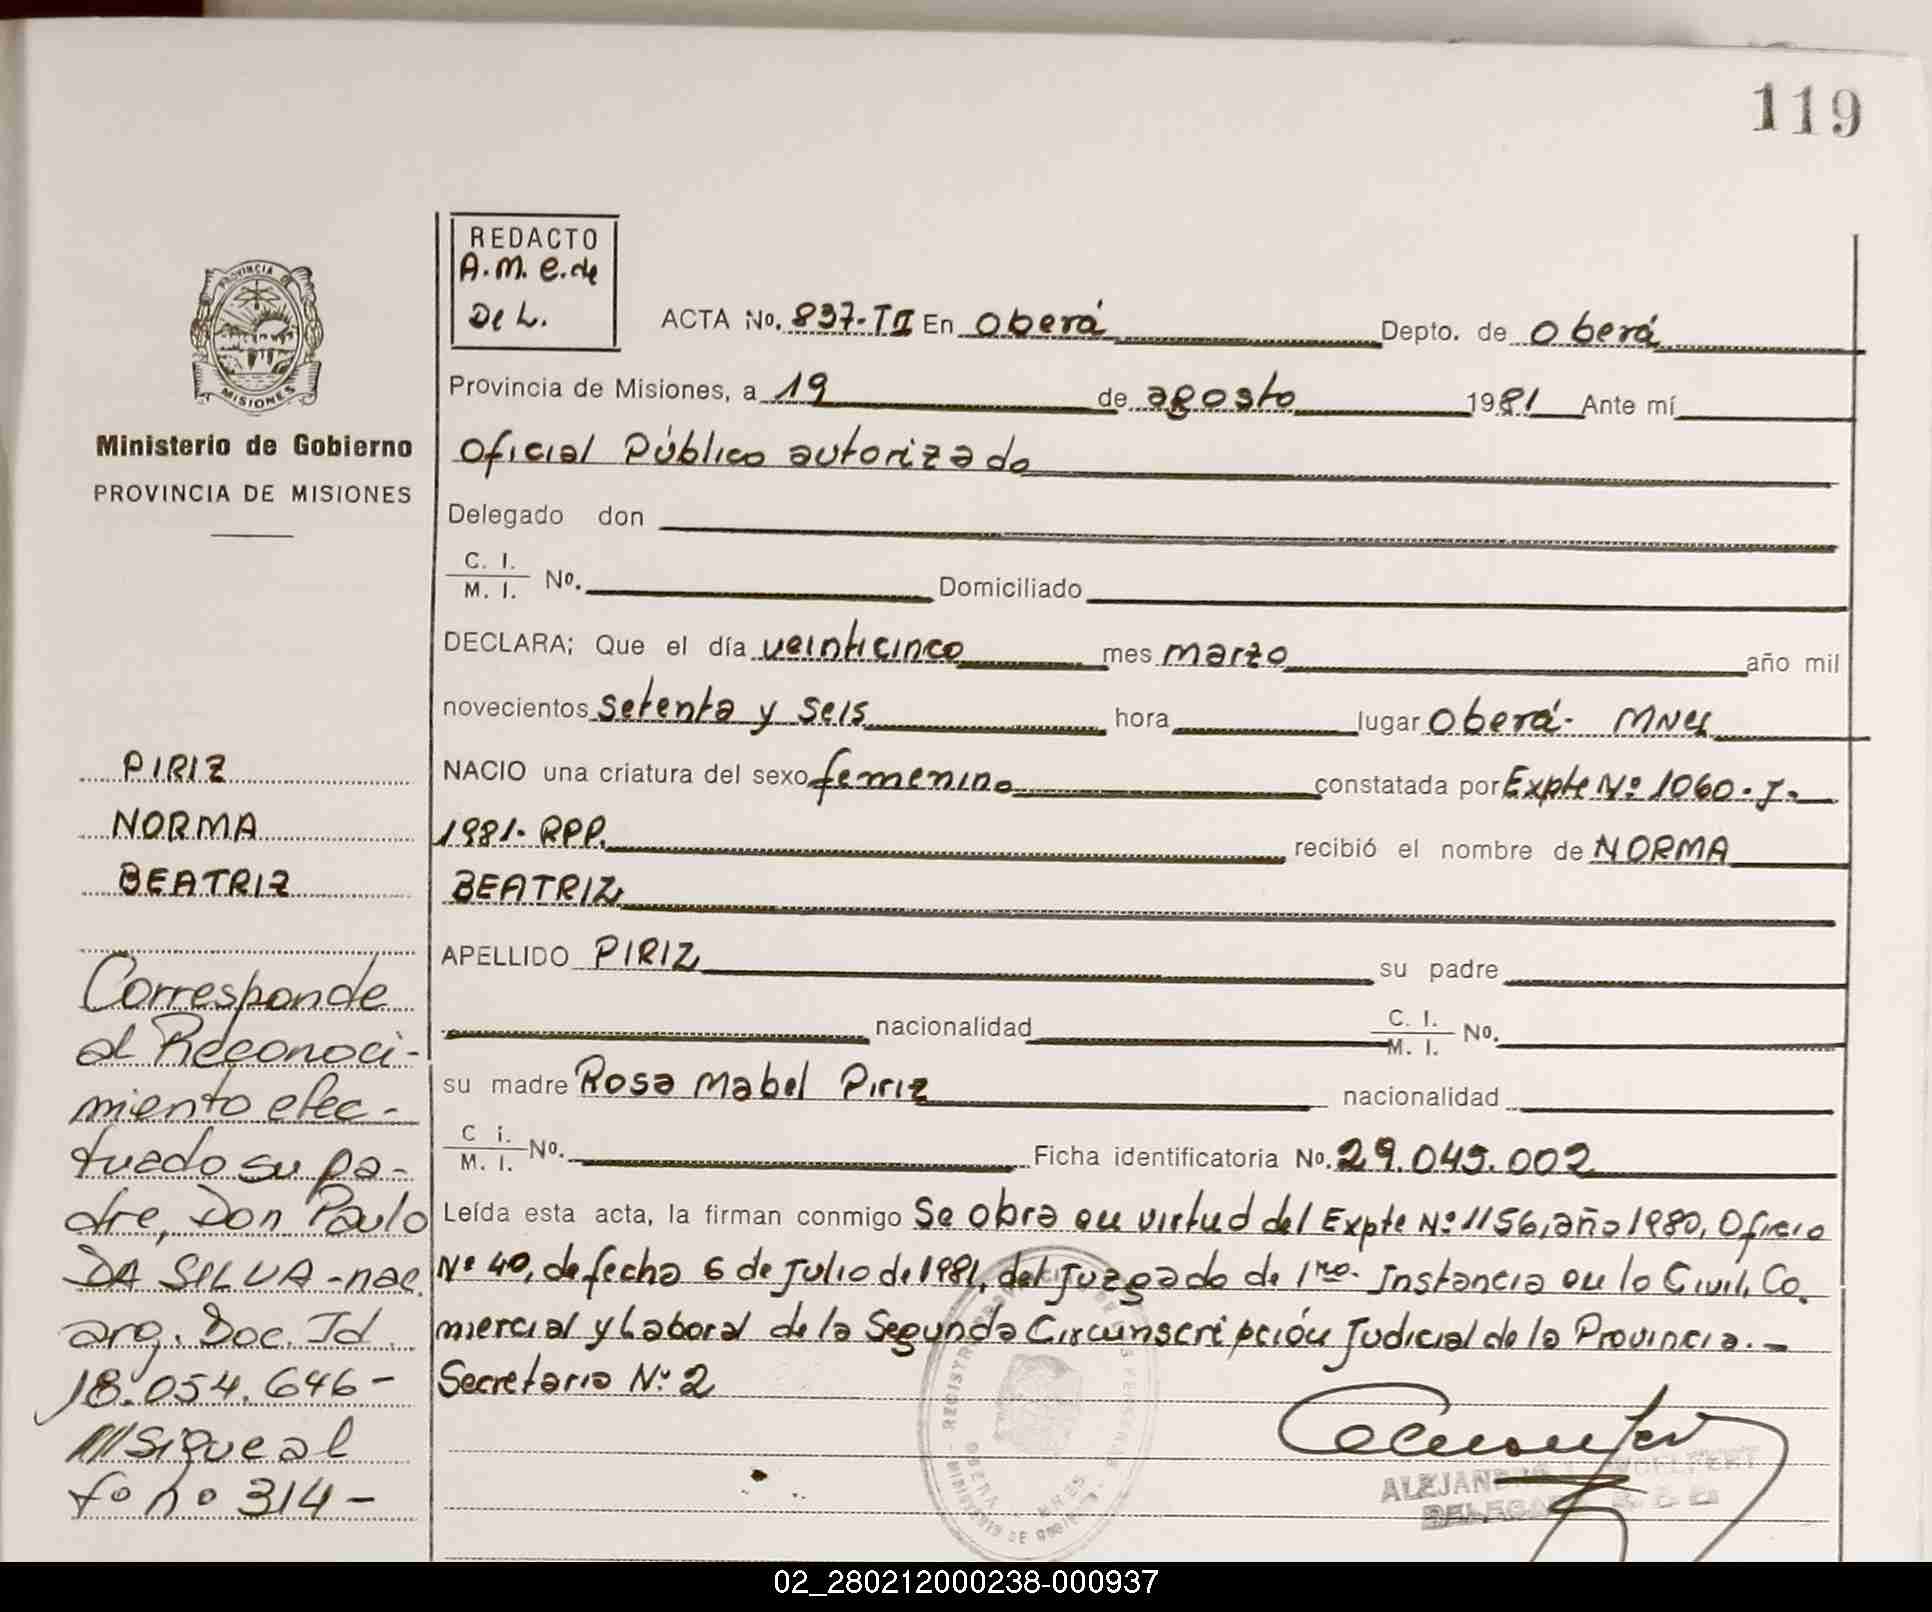 119
REDACTO
A.M. e. de
De L.
PROVINCIA DE
MISIONES
ACTA No. 837-TII En Oberá Depto. de Oberá
Provincia de Misiones, a 19 de agosto 1981 Ante mí
Ministerio de Gobierno
PROVINCIA DE MISIONES
Oficial Público autorizado
Delegado don
C. I.
M. I. No. Domiciliado
DECLARA; Que el día veinticinco mes marzo año mil
novecientos setenta y seis hora lugar Oberá-
NACIO una criatura del sexo femenino constatada por Expte Nº 1060-J-
1981- RPP. recibió el nombre de NORMA
BEATRIZ
APELLIDO PIRIZ su padre
nacionalidad C. I.
M. I. No.
su madre Rosa Mabel Piriz nacionalidad
C i.
M. I. No. Ficha identificatoria No. 29.045.002
Leída esta acta, la firman conmigo Se obra en virtud del Expte Nº 1156, año 1980, Oficio
Nº 40, de fecha 6 de Julio de 1981, del Juzgado de 1ra. Instancia en lo Civil, Co.
mercial y Laboral de la Segunda Circunscripción Judicial de la Provincia.-
Secretaria Nº 2
PIRIZ
NORMA
BEATRIZ
Corresponde
al Reconoci-
miento efec-
tuado su pa-
dre, Don Paulo
DA SILVA - nac.
arg. Doc. Id.
18.054.646-
///Sigue al
fº nº 314-
02_280212000238-000937